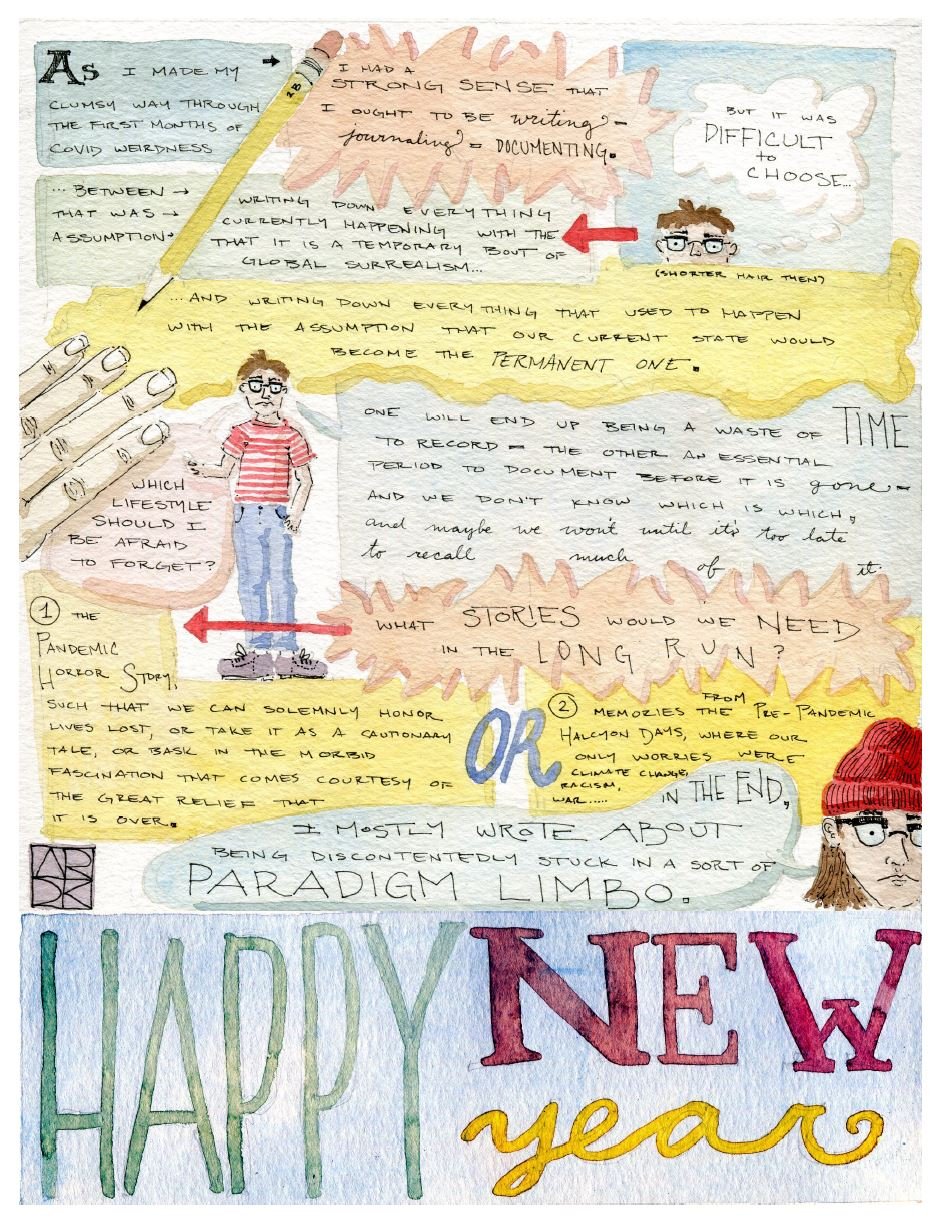 As I MADE MY →
CLUMSY WAY THROUGH
THE FIRST MONTHS OF
COVID WEIRDNESS
2B
I HAD A
STRONG SENSE THAT
I OUGHT TO BE writing -
journaling - DOCUMENTING.
BUT IT WAS
DIFFICULT
to
CHOOSE...
(SHORTER HAIR THEN)
... BETWEEN →
THAT WAS →
ASSUMPTION→
WRITING DOWN EVERYTHING
CURRENTLY HAPPENING WITH THE
THAT IT IS A TEMPORARY BOUT OF
GLOBAL SURREALISM...
...AND WRITING DOWN EVERYTHING THAT USED TO HAPPEN
WITH THE ASSUMPTION THAT OUR CURRENT STATE WOULD
BECOME THE PERMANENT ONE.
ONE WILL END UP BEING A WASTE OF TIME
TO RECORD - THE OTHER AN ESSENTIAL
PERIOD TO DOCUMENT BEFORE IT IS gone -
AND WE DON'T KNOW WHICH IS WHICH,
and maybe we won't until it's too late
to recall much of it.
WHICH
LIFESTYLE
SHOULD I
BE AFRAID
TO FORGET?
WHAT STORIES WOULD WE NEED
IN THE LONG RUN?
1 THE
PANDEMIC
HORROR STORY,
SUCH THAT WE CAN SOLEMNLY HONOR
LIVES LOST, OR TAKE IT AS A CAUTIONARY
TALE, OR BASK IN THE MORBID
FASCINATION THAT COMES COURTESY OF
THE GREAT RELIEF THAT
IT IS OVER.
OR
2 MEMORIES FROM THE PRE-PANDEMIC
HALCYON DAYS, WHERE OUR
ONLY WORRIES WERE
CLIMATE CHANGE,
RACISM,
WAR.....
IN THE END,
I MOSTLY WROTE ABOUT
BEING DISCONTENTEDLY STUCK IN A SORT OF
PARADIGM LIMBO.
HAPPY NEW
year